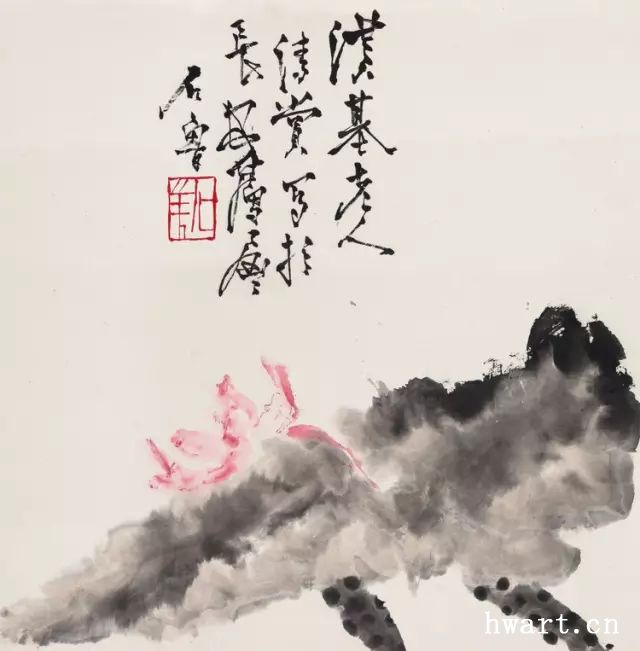 漢基老人
清賞写於
長安
石魯
hwart.cn